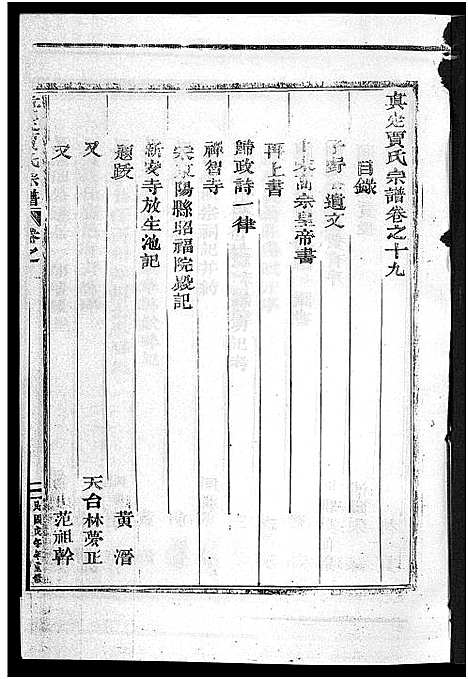 真定賈氏宗譜卷之十九
目錄
子野公遺文
上宋高宗皇帝書
再上書
歸政詩一律
禪智寺
宋東陽縣昭福院殿記
新安寺放生池記
題跋 黃溍
又 天台林夢正
又 范祖幹
真定賈氏宗譜 卷之 民國戊午年重修